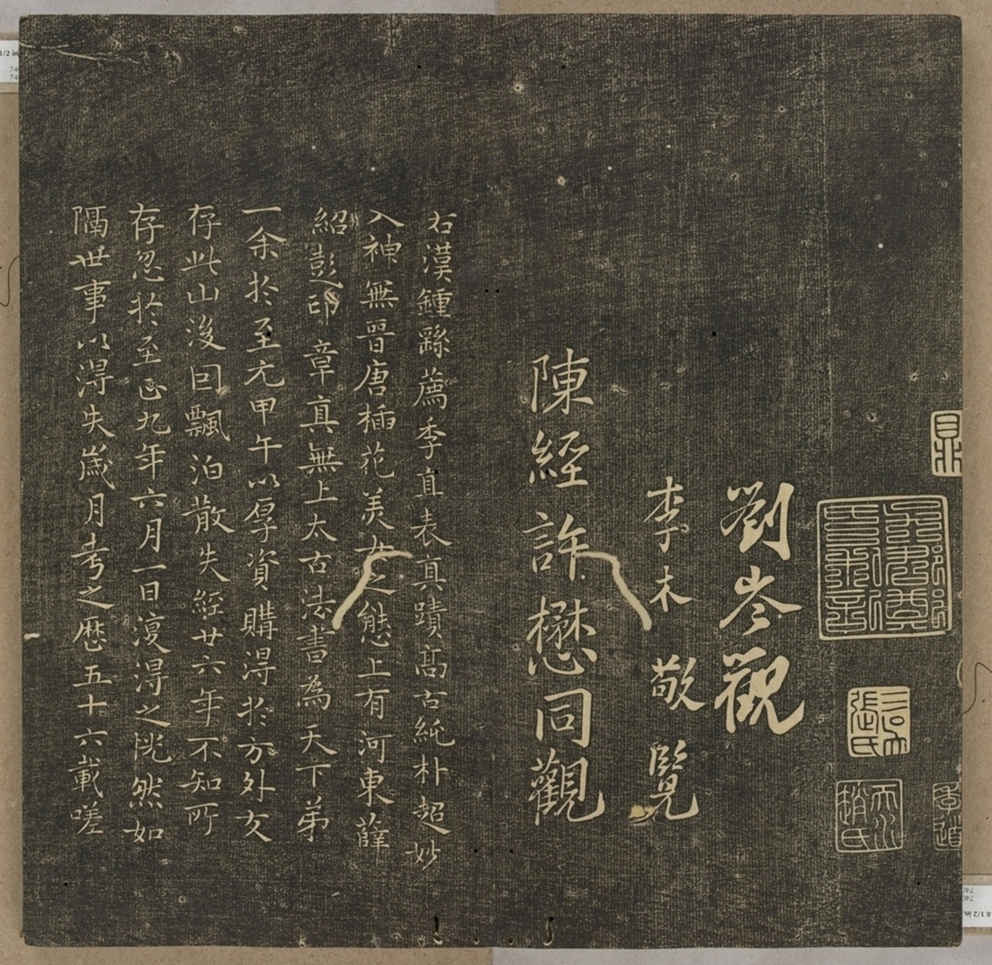 劉岑觀
李木敬覽
陳經許懋同觀
右漢鍾繇薦季直表真蹟高古純朴超妙
入神無晉唐插花美女之態上有河東薛
紹彭印章真無上太古法書為天下弟
一余於至元甲午以厚資購得於方外友
存此山後因飄泊散失經廿六年不知所
存忽於至正九年六月一日復得之恍然如
隔世事以得失歲月考之歷五十六載嗟